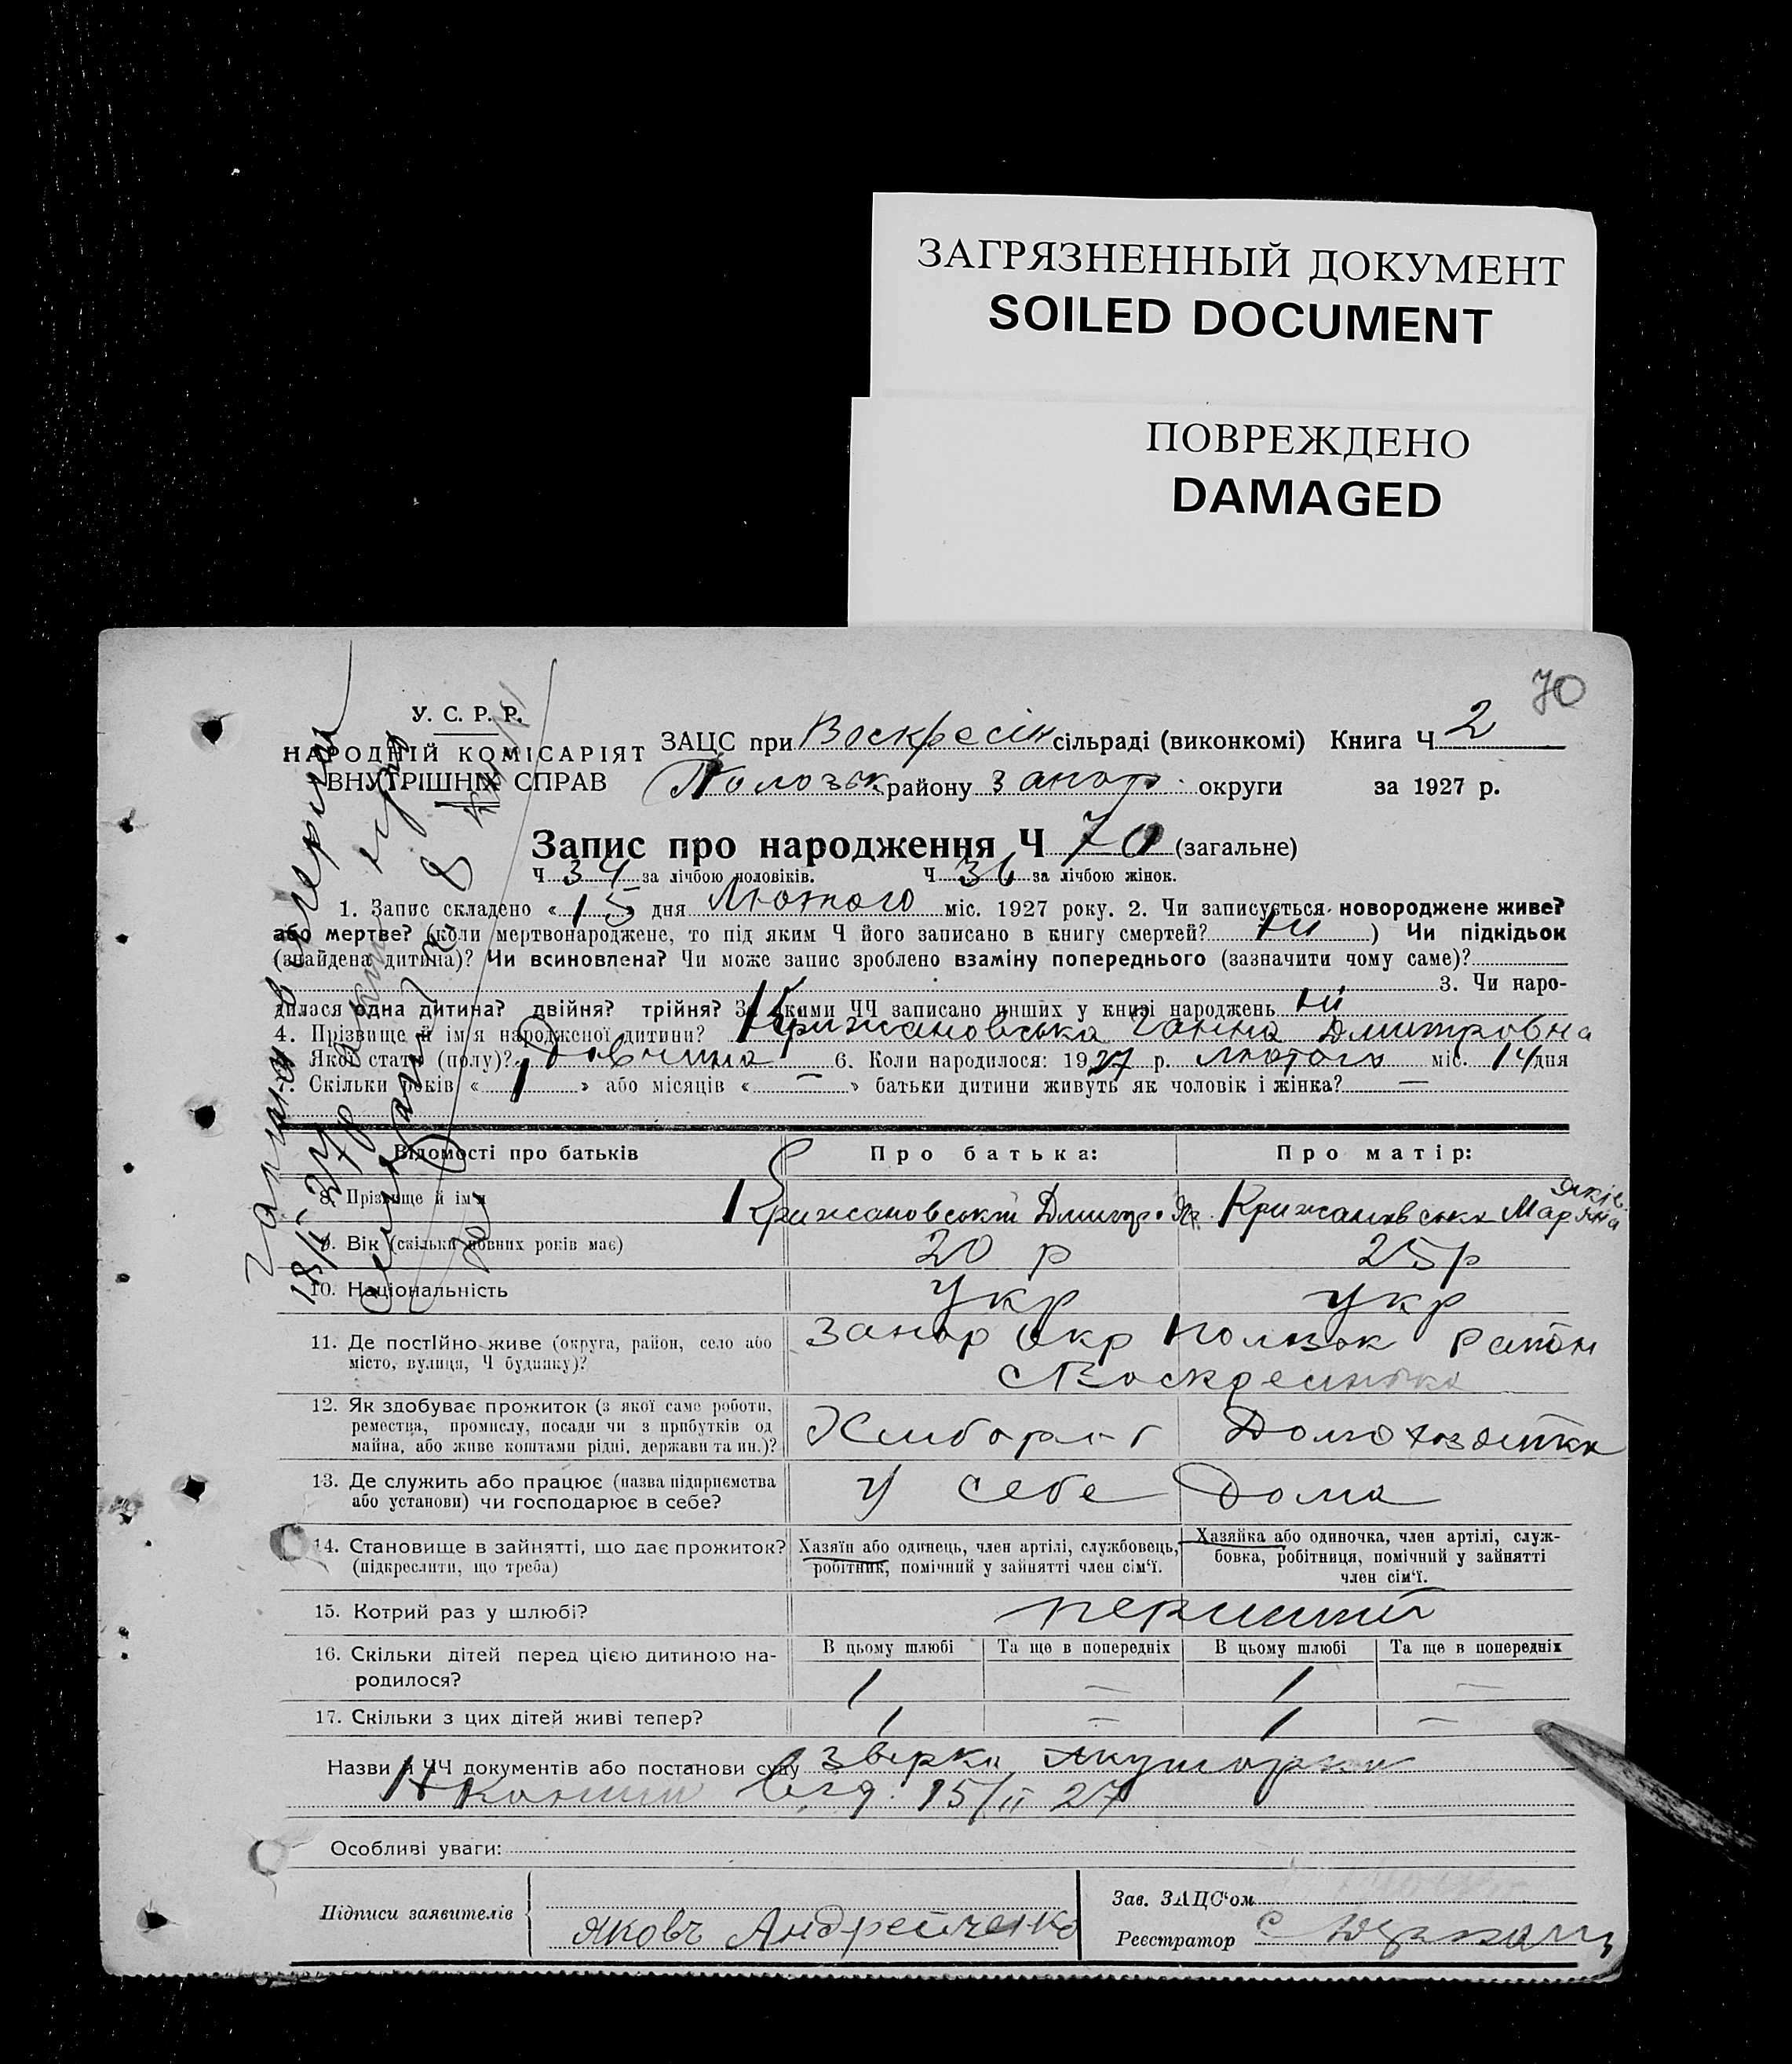 ЗАГРЯЗНЕННЫЙ ДОКУМЕНТ
SOILED DOCUMENT
ПОВРЕЖДЕНО
DAMAGED
70
У. С. Р. Р.
НАРОДНІЙ КОМІСАРІЯТ
ВНУТРІШНІХ СПРАВ
ЗАЦС при Воскресін сільраді (виконкомі) Книга Ч 2
Полозьк району Запор округи за 1927 р.
Запис про народження Ч 70 (загальне)
Ч 34 за лічбою чоловіків. Ч 36 за лічбою жінок.
1. Запис складено « 15 дня Лютого міс. 1927 року. 2. Чи записується новороджене живе?
або мертве? (коли мертвонароджене, то під яким Ч його записано в книгу смертей? ні ) Чи підкідьок
(знайдена дитина)? Чи всиновлена? Чи може запис зроблено взаміну попереднього (зазначити чому саме)?
3. Чи наро-
дилася одна дитина? двійня? трійня? З якими ЧЧ записано инших у книзі народжень ні
4. Прізвище й ім'я народженої дитини? Крижановська Ганна Дмитровна
5. Якої стати (полу)? Дівчина 6. Коли народилося: 1927 р. лютого міс. 14 дня
7. Скільки років « 1 » або місяців « — » батьки дитини живуть як чоловік і жінка? —
Відомості про батьків Про батька: Про матір:
8. Прізвище й ім'я Крижановський Дмитро Крижановська Мар'яна Яків.
9. Вік (скільки повних років має) 20 р 25 р
10. Національність укр укр
11. Де постійно живе (округа, район, село або
місто, вулиця, Ч будинку)?
Запор Окр Полозьк район
с Воскресинка
12. Як здобуває прожиток (з якої саме роботи,
ремества, промислу, посади чи з прибутків од
майна, або живе коштами рідні, держави та ин.)?
Хлібороб Домохозяйка
13. Де служить або працює (назва підприємства
або установи) чи господарює в себе?
у себе Дома
14. Становище в зайнятті, що дає прожиток?
(підкреслити, що треба)
Хазяїн або одинець, член артілі, службовець,
робітник, помічний у зайнятті член сім'ї.
Хазяйка або одиночка, член артілі, служ-
бовка, робітниця, помічний у зайнятті
член сім'ї.
15. Котрий раз у шлюбі? перший
16. Скільки дітей перед цією дитиною на-
родилося?
В цьому шлюбі Та ще в попередніх В цьому шлюбі Та ще в попередніх
1 — 1 —
17. Скільки з цих дітей живі тепер? 1 — 1 —
Назви й ЧЧ документів або постанови суду
від 15/II 27
Особливі уваги:
Підписи заявителів
Яковъ Андрейченко
Зав. ЗАЦС'ом
Реєстратор